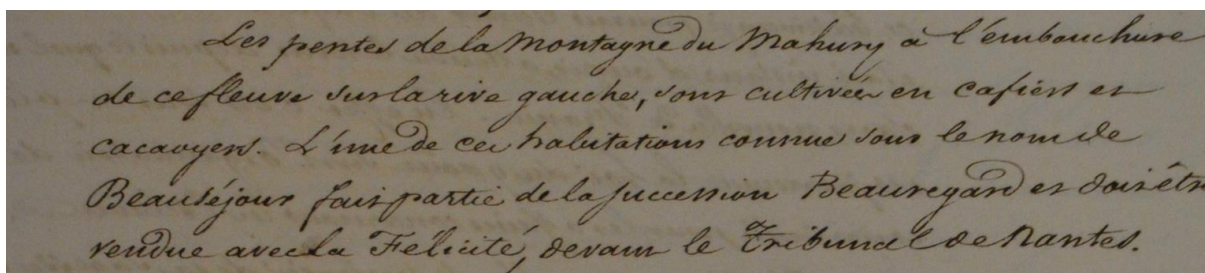 Les pentes de la Montagne du Mahury à l'embouchure
de ce fleuve sur la rive gauche, sont cultivées en cafiers et
cacaoyers. L'une de ces habitations connue sous le nom de
Beauséjour fait partie de la succession Beauregard et doit êtr
vendue avec la Félicité, devant le Tribunal de Nantes.